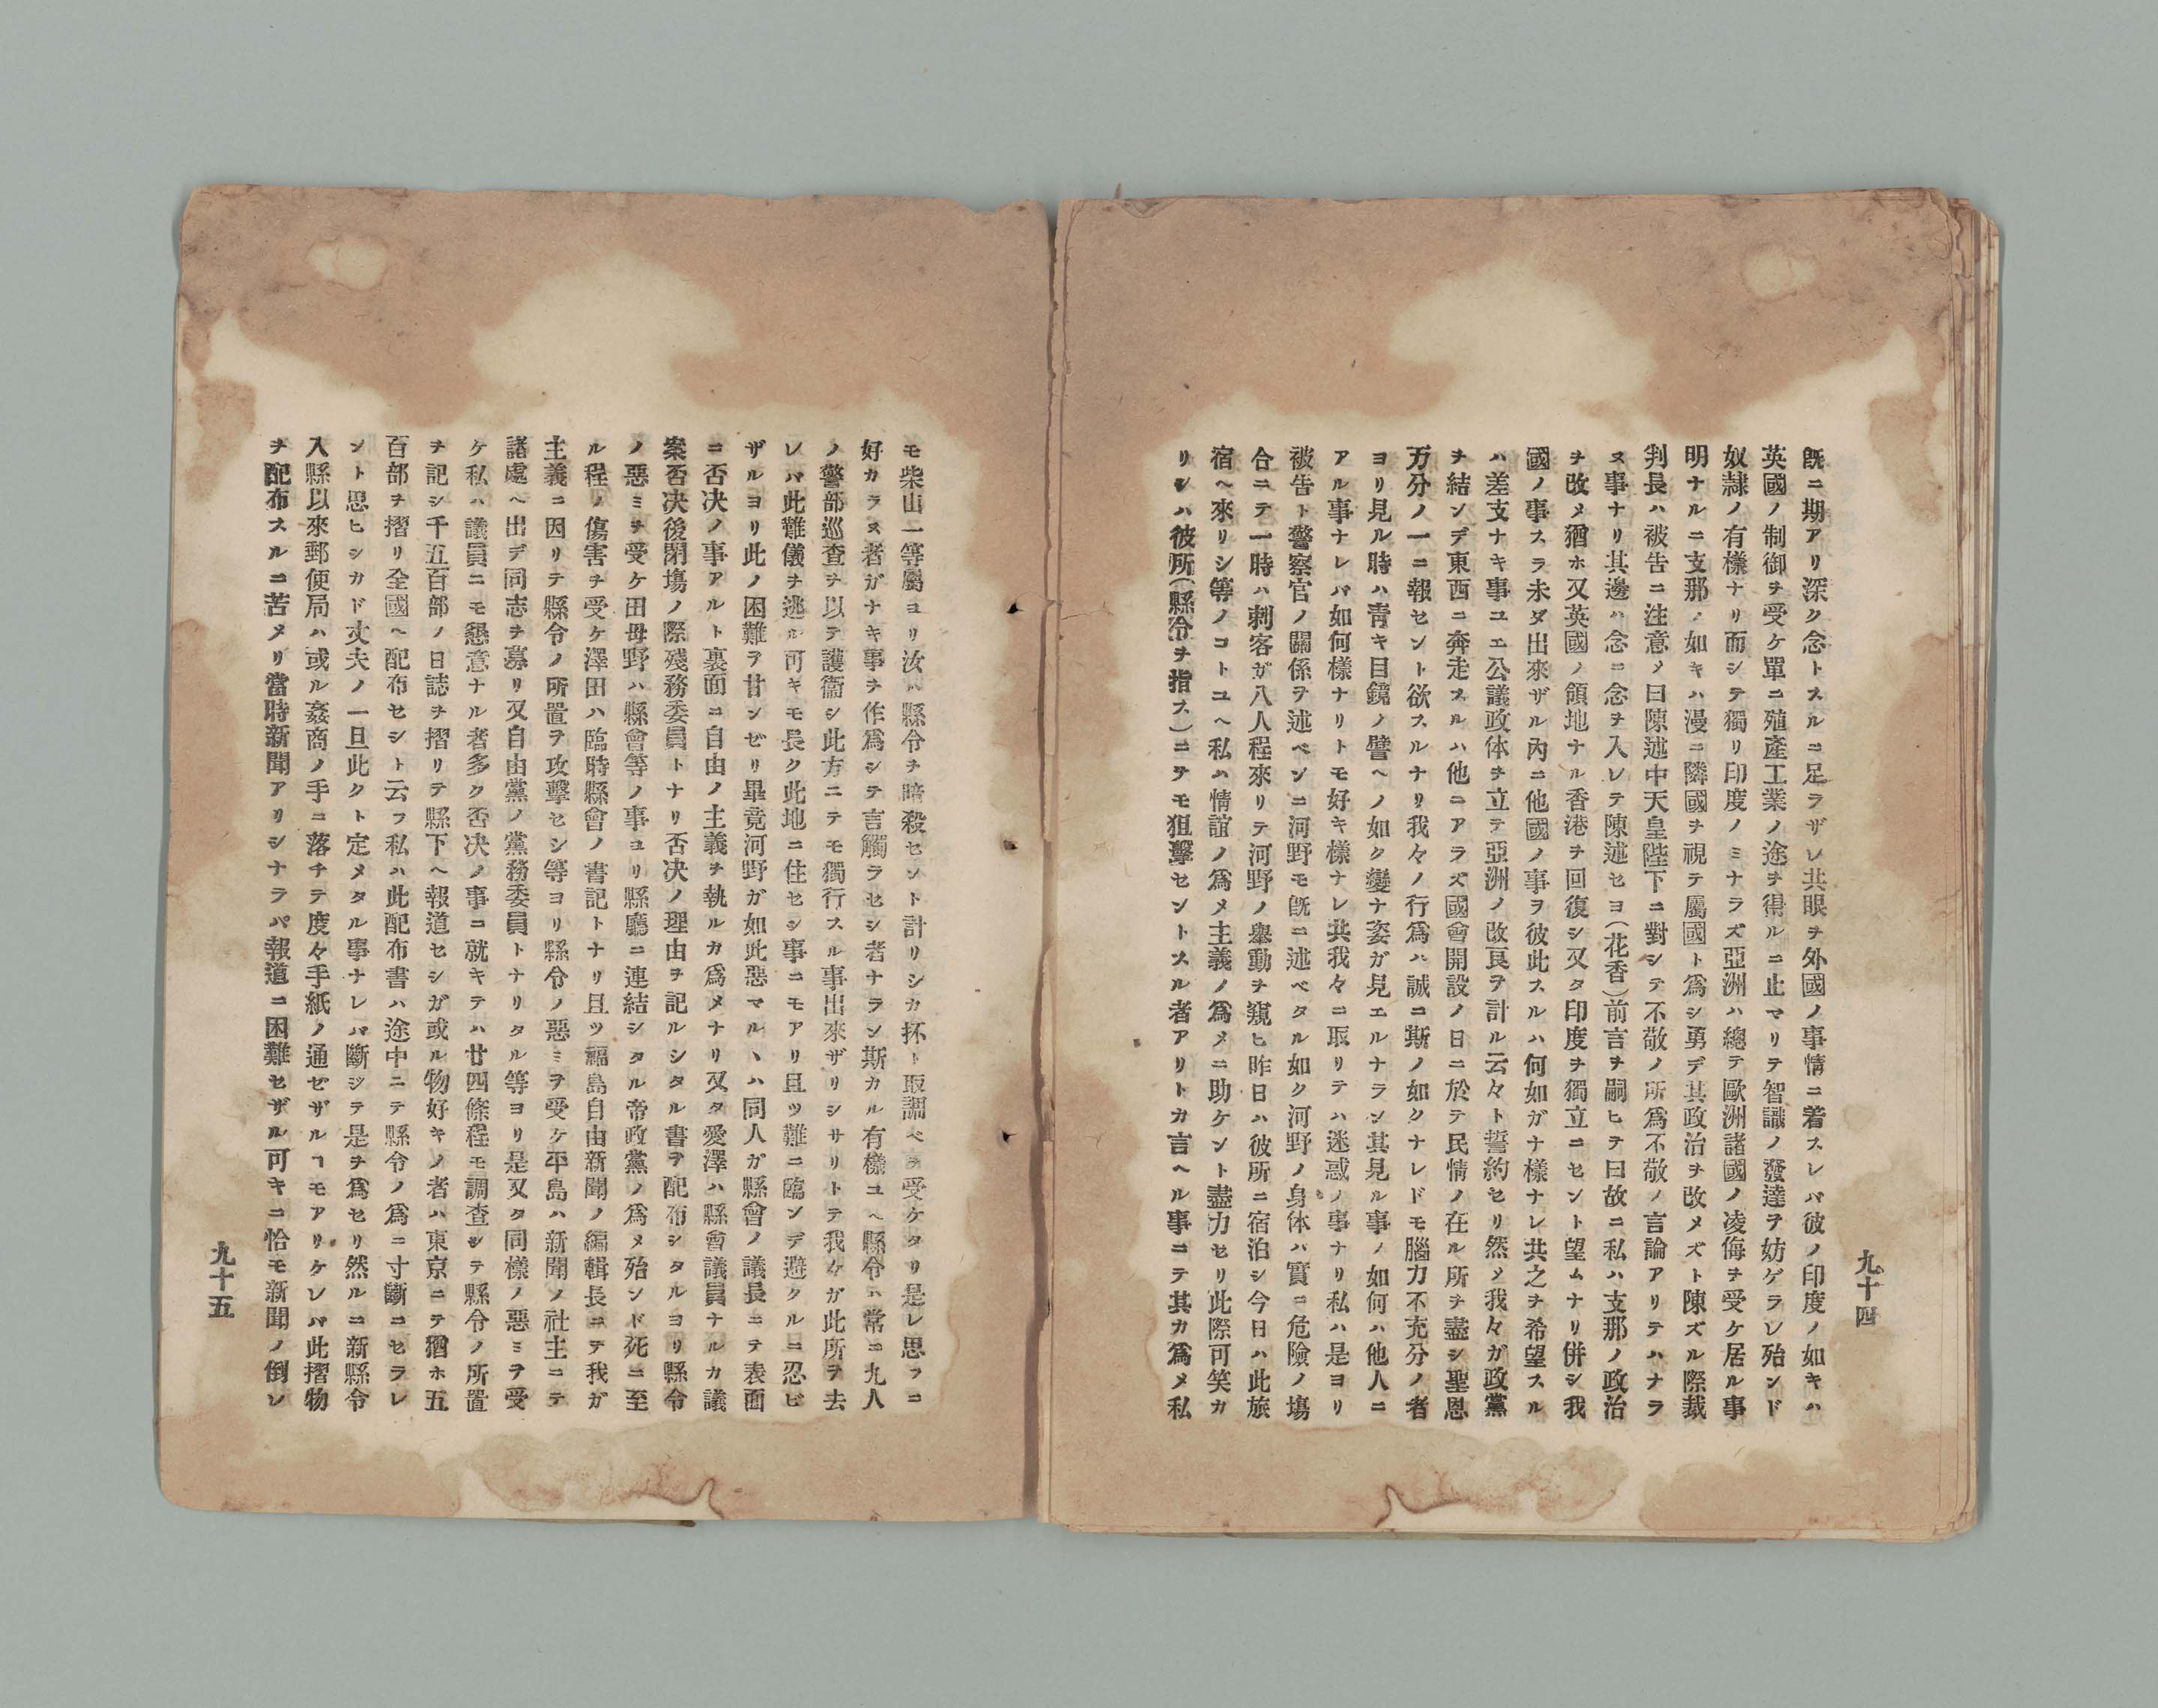 九十四
既ニ期アリ深ク念トスルニ足ラザレ共眼ヲ外國ノ事情ニ着スレバ彼ノ印度ノ如キハ
英國ノ制御ヲ受ケ單ニ殖產工業ノ途ヲ得ルニ止マリテ智識ノ發達ヲ妨ゲラレ殆ンド
奴隷ノ有樣ナリ而シテ獨リ印度ノミナラズ亞洲ハ總テ歐洲諸國ノ凌侮ヲ受ケ居ル事
明ナルニ支那ノ如キハ漫ニ隣國ヲ視テ屬國ト爲シ勇デ其政治ヲ改メズト陳ズル際裁
判長ハ被告ニ注意メ曰陳述中天皇陛下ニ對シテ不敬ノ所爲不敬ノ言論アリテハナラ
ヌ事ナリ其邊ハ念ニ念ヲ入レテ陳述セヨ(花香)前言ヲ嗣ヒテ曰故ニ私ハ支那ノ政治
ヲ改メ猶ホ又英國ノ領地ナル香港ヲ回復シ又タ印度ヲ獨立ニセント望ムナリ併シ我
國ノ事スラ未ダ出來ザル內ニ他國ノ事ヲ彼此スルハ何如ガナ樣ナレ共之ヲ希望スル
ハ差支ナキ事ユエ公議政体ヲ立テ亞洲ノ改良ヲ計ル云々ト誓約セリ然メ我々ガ政黨
ヲ結ンデ東西ニ奔走スルハ他ニアラズ國會開設ノ日ニ於テ民情ノ在ル所ヲ盡シ聖恩
万分ノ一ニ報セント欲スルナリ我々ノ行爲ハ誠ニ斯ノ如クナレドモ腦力不充分ノ者
ヨリ見ル時ハ靑キ目鏡ノ譬ヘノ如ク變ナ姿ガ見エルナラン其見ル事ノ如何ハ他人ニ
アル事ナレバ如何樣ナリトモ好キ樣ナレ共我々ニ取リテハ迷惑ノ事ナリ私ハ是ヨリ
被告ト警察官ノ關係ヲ述ベンニ河野モ既ニ述ベタル如ク河野ノ身体ハ實ニ危險ノ塲
合ニテ一時ハ刺客ガ八人程來リテ河野ノ擧動ヲ窺ヒ昨日ハ彼所ニ宿泊シ今日ハ此旅
宿ヘ來リシ等ノコトユヘ私ハ情誼ノ爲メ主義ノ爲メニ助ケント盡力セリ此際可笑カ
リシハ彼所(縣令ヲ指ス)ニテモ狙擊セントスル者アリトカ言ヘル事ニテ其カ爲メ私
モ柴山一等屬ヨリ汝ハ縣令ヲ暗殺セント計リシカ抔ト取調ベヲ受ケタリ是レ思フニ
好カラヌ者ガナキ事ヲ作爲シテ言觸ラセシ者ナラン斯カル有樣ユヘ縣令ハ常ニ九人
ノ警部巡査ヲ以テ護衞シ此方ニテモ獨行スル事出來ザリシサリトテ我々ガ此所ヲ去
レバ此難儀ヲ逃ル可キモ長ク此地ニ住セシ事ニモアリ且ツ難ニ臨ンデ避クルニ忍ビ
ザルヨリ此ノ困難ヲ甘ンゼリ畢竟河野ガ如此惡マルヽハ同人ガ縣會ノ議長ニテ表面
ニ否決ノ事アルト裏面ニ自由ノ主義ヲ執ルカ爲メナリ又タ愛澤ハ縣會議員ナルカ議
案否决後閉塲ノ際殘務委員トナリ否决ノ理由ヲ記ルシタル書ヲ配布シタルヨリ縣令
ノ惡ミヲ受ケ田母野ハ縣會等ノ事ヨリ縣廳ニ連結シタル帝政黨ノ爲メ殆ンド死ニ至
ル程ノ傷害ヲ受ケ澤田ハ臨時縣會ノ書記トナリ且ツ福島自由新聞ノ編輯長ニテ我ガ
主義ニ因リテ縣令ノ所置ヲ攻擊セシ等ヨリ縣令ノ惡ミヲ受ケ平島ハ新聞ノ社主ニテ
諸處ヘ出デ同志ヲ募リ又自由黨ノ黨務委員トナリタル等ヨリ是又タ同樣ノ惡ミヲ受
ケ私ハ議員ニモ懇意ナル者多ク否决ノ事ニ就キテハ廿四條程モ調査シテ縣令ノ所置
ヲ記シ千五百部ノ日誌ヲ摺リテ縣下ヘ報道セシガ或ル物好キノ者ハ東京ニテ猶ホ五
百部ヲ摺リ全國ヘ配布セシト云フ私ハ此配布書ハ途中ニテ縣令ノ爲ニ寸斷ニセラレ
ント思ヒシカド丈夫ノ一旦此クト定メタル事ナレバ斷シテ是ヲ爲セリ然ルニ新縣令
入縣以來郵便局ハ或ル姦商ノ手ニ落チテ度々手紙ノ通ゼザルヿモアリケレバ此摺物
ヲ配布スルニ苦メリ當時新聞アリシナラバ報道ニ困難セザル可キニ恰モ新聞ノ倒レ
九十五